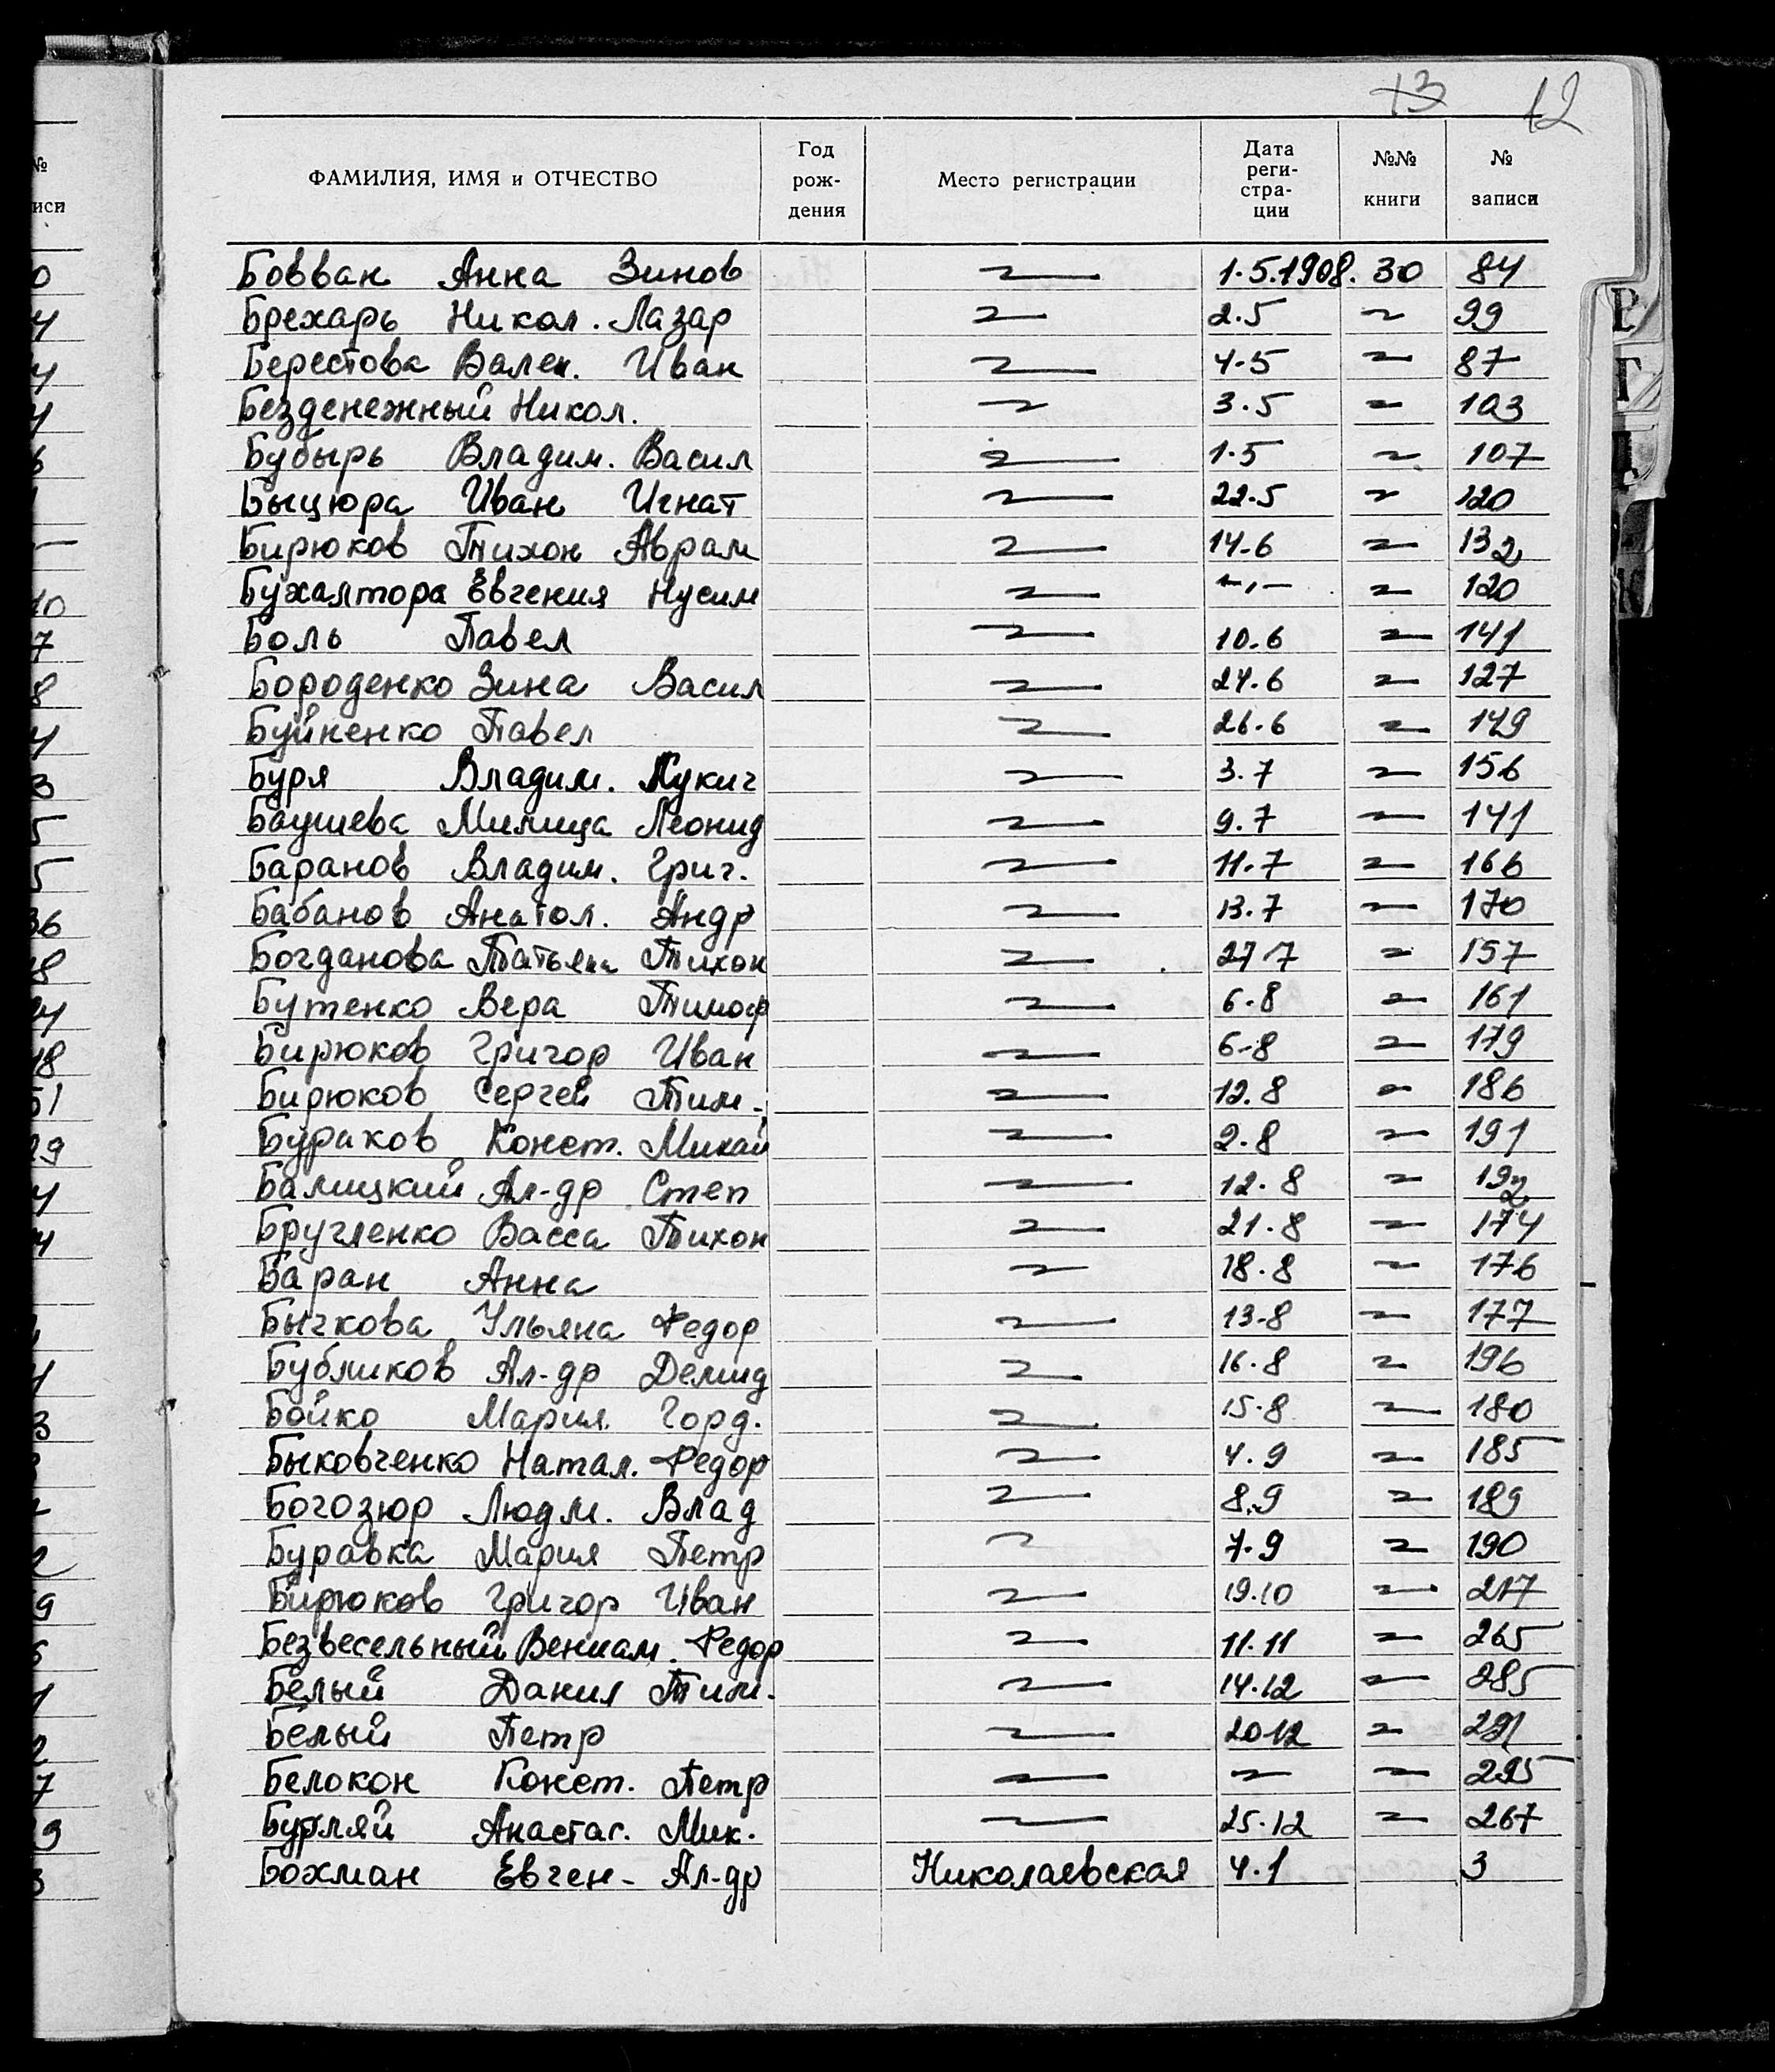 13 12
ФАМИЛИЯ, ИМЯ и ОТЧЕСТВО Год рож- дения Место регистрации Дата реги- стра- ции №№ книги № записи
Бовван Анна Зинов 〃 1.5.1908. 30 84
Брехарь Никол. Лазар 〃 2.5 〃 99
Берестова Вален. Иван 〃 4.5 〃 87
Безденежный Никол. 〃 3.5 〃 103
Бубырь Владим. Васил 〃 1.5 〃 107
Быцюра Иван Игнат 〃 22.5 〃 120
Бирюков Тихон Аврам 〃 14.6 〃 132
Бухалтора Евгения Нусим 〃 -,- 〃 120
Боль Павел 〃 10.6 〃 141
Бороденко Зина Васил 〃 24.6 〃 127
Буйненко Павел 〃 26.6 〃 149
Буря Владим. Лукич 〃 3.7 〃 156
Баушева Милица Леонид 〃 9.7 〃 141
Баранов Владим. Григ. 〃 11.7 〃 166
Бабанов Анатол. Андр 〃 13.7 〃 170
Богданова Татьяна Тихон 〃 27 7 〃 157
Бутенко Вера Тимоф 〃 6.8 〃 161
Бирюков Григор Иван 〃 6-8 〃 179
Бирюков Сергей Тим- 〃 12.8 〃 186
Бураков Конст. Михай 〃 2.8 〃 191
Балицкий Ал-др Степ 〃 12.8 〃 192
Бругленко Васса Тихон 〃 21.8 〃 174
Баран Анна 〃 18.8 〃 176
Бычкова Ульяна Федор 〃 13-8 〃 177
Бубликов Ал-др Демид 〃 16.8 〃 196
Бойко Мария Горд. 〃 15.8 〃 180
Быковченко Натал. Федор 〃 4.9 〃 185
Богозюр Людм. Влад 〃 8.9 〃 189
Буравка Мария Петр 〃 7.9 〃 190
Бирюков Григор Иван 〃 19.10 〃 217
Безвесельный Вениам. Федор 〃 11.11 〃 265
Белый Данил Тим. 〃 14.12 〃 285
Белый Петр 〃 20 12 〃 291
Белокон Конст. Петр 〃 〃 〃 295
Бурляй Анастас. Мик. 〃 25.12 〃 267
Бохман Евген- Ал-др Николаевская 4.1 3